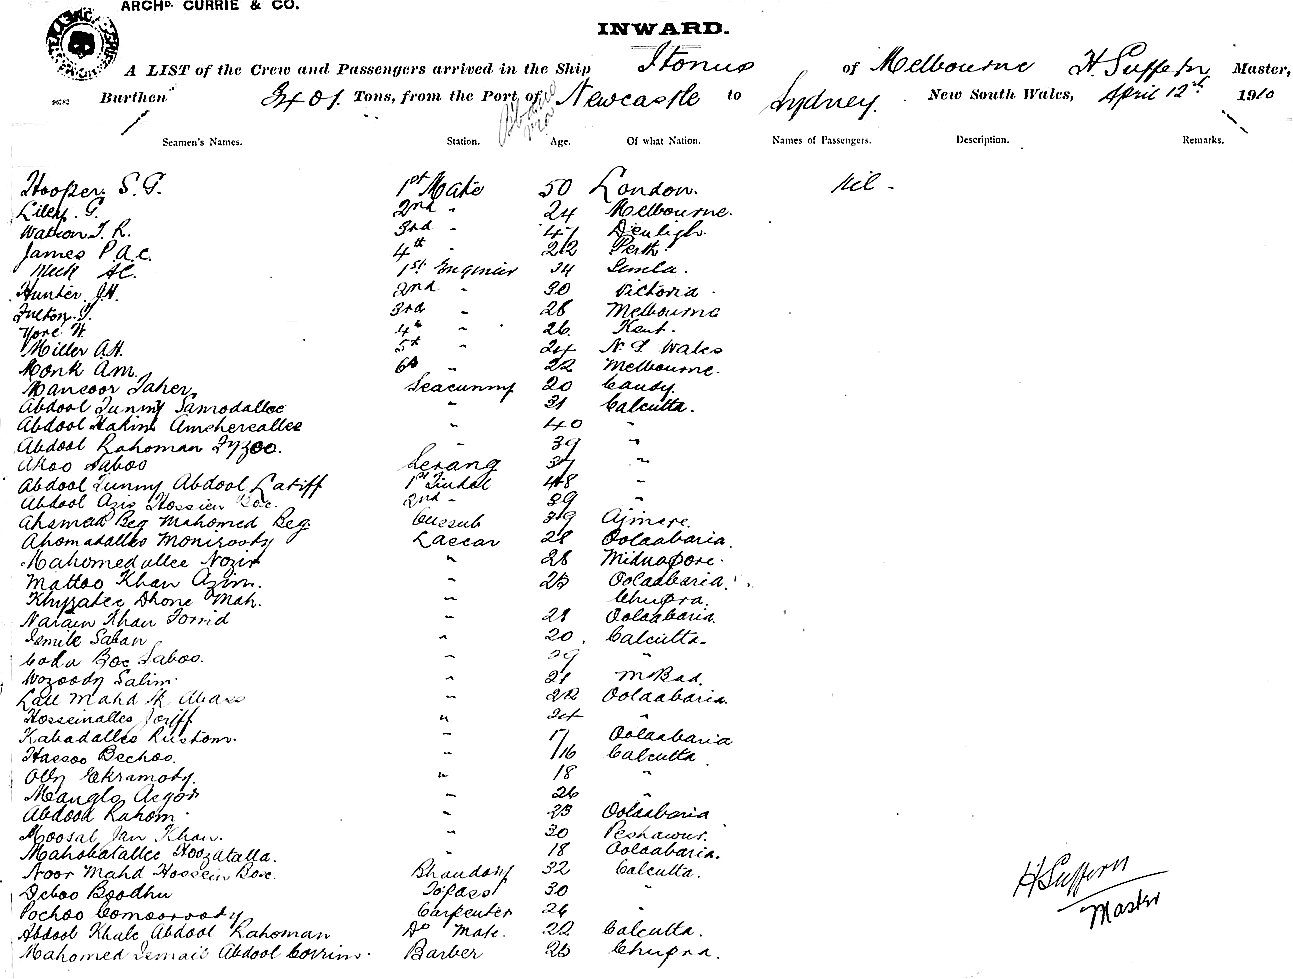 ARCHD. CURRIE & CO.
INWARD.
A LIST of the Crew and Passengers arrived in the Ship Itonus of Melbourne H Suffern Master,
Burthen 3401 Tons, from the Port of Newcastle to Sydney. New South Wales, April 12th 1910
Seamen's Names. Station. Age. Of what Nation. Names of Passengers. Description. Remarks.
Hooper S. G. 1st Mate 50 London. Nil -
Liley. G. 2nd " 24 Melbourne.
Watson T. R. 3rd " 47 Denbigh.
James P A.C. 4th " 22 Perth.
A.C. 1st Engineer 34 Simla.
Hunter J.H. 2nd " 30 Victoria.
Fulton. J. 3rd " 28 Melbourne
Yore W. 4th " 26 Kent.
Miller A.H. 5th " 24 N. S Wales
Monk A.M. 6th " 22 Melbourne.
Mansoor Taher Seacunny 20 Candy
Abdool Sunny Samodallee " 31 Calcutta.
Abdool Hakim Amehereallee " 40 "
Abdool Rahoman Fyzoo. " 39 "
Akoo Saboo Serang 37 "
Abdool Sunny Abdool Latiff 1st Tindal 48 "
Abdool Azis Hossien Box. 2nd " 39 "
Ahamad Beg Mahomed Beg Cussub 39 Ajmere.
Ahomadallee Monirooddy Lascar 28 Oolaabaria.
Mahomedallee Nozir " 28 Midnapore.
Mattoo Khan Azim. " 25 Oolaabaria.
Khyratee Dhone Mah. " Chupra.
Narain Khan Torrid " 28 Oolaabaria
Ismile Saban " 20. Calcutta
Coda Box Saboo. " 29 "
Wozoody Salim. " 21 M Bad.
Lall Mahd Sk Abass " 22 Oolaabaria.
Hosseinallee Joriff " 24 "
Kabadallee Rustom. " 17 Oolaabaria
Hassoo Bechoo. " 16 Calcutta
Olly Ekramody. " 18 "
Manglo Asgor " 26 "
Abdool Rahom. " 23 Oolaabaria
Moosal Jan Khan. " 30 Peshawur.
Mahobatallee Hoozatalla. " 18 Oolaabaria.
Noor Mahd Hossein Box. Bhandary 32 Calcutta.
Deboo Boodhu Topass 30 "
Pochoo Comoroody Carpenter 26 "
Abdool Khale Abdool Rahoman Do Mate. 22 Calcutta.
Mahomed Ismail Abdool Corrim. Barber 25 Chupra.
H Suffern
Master